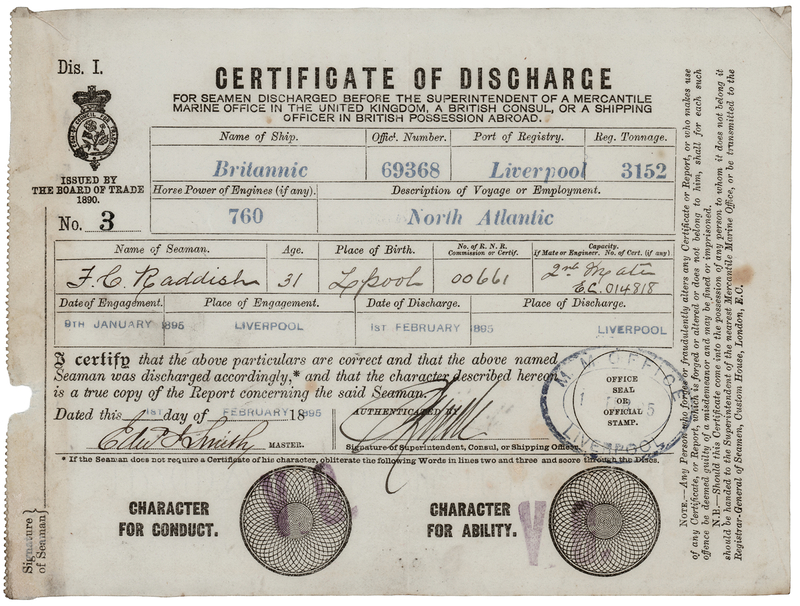 Dis. I.
CERTIFICATE OF DISCHARGE
FOR SEAMEN DISCHARGED BEFORE THE SUPERINTENDENT OF A MERCANTILE
MARINE OFFICE IN THE UNITED KINGDOM, A BRITISH CONSUL, OR A SHIPPING
OFFICER IN BRITISH POSSESSION ABROAD.
ISSUED BY
THE BOARD OF TRADE
1890.
No. 3
Name of Ship. Officl. Number. Port of Registry. Reg. Tonnage.
Britannic 69368 Liverpool 3152
Horse Power of Engines (if any). Description of Voyage or Employment.
760 North Atlantic
Name of Seaman. Age. Place of Birth. No. of R. N. R. Commission or Certif. Capacity. If Mate or Engineer, No. of Cert. (if any)
F. C. Raddish 31 L'pool 00661 2nd Mate
E.C. 014818
Date of Engagement. Place of Engagement. Date of Discharge. Place of Discharge.
9TH JANUARY 1895 LIVERPOOL 1ST FEBRUARY 1895 LIVERPOOL
I certify that the above particulars are correct and that the above named
Seaman was discharged accordingly,* and that the character described hereon
is a true copy of the Report concerning the said Seaman.
Dated this 1ST day of FEBRUARY 1895 AUTHENTICATED BY
Edwd J Smith MASTER.
Signature of Superintendent, Consul, or Shipping Officer
* If the Seaman does not require a Certificate of his character, obliterate the following Words in lines two and three and score through the Discs.
M. M. OFFICE
OFFICE
SEAL
OR
OFFICIAL
STAMP.
LIVERPOOL
CHARACTER
FOR CONDUCT.
V G
CHARACTER
FOR ABILITY.
V G
Signature
of Seaman
NOTE.—Any Person who forges or fraudulently alters any Certificate or Report, or who makes use
of any Certificate, or Report, which is forged or altered or does not belong to him, shall for each such
offence be deemed guilty of a misdemeanor and may be fined or imprisoned.
N.B.—Should this Certificate come into the possession of any person to whom it does not belong it
should be handed to the Superintendent of the nearest Mercantile Marine Office, or be transmitted to the
Registrar-General of Seamen, Custom House, London, E.C.